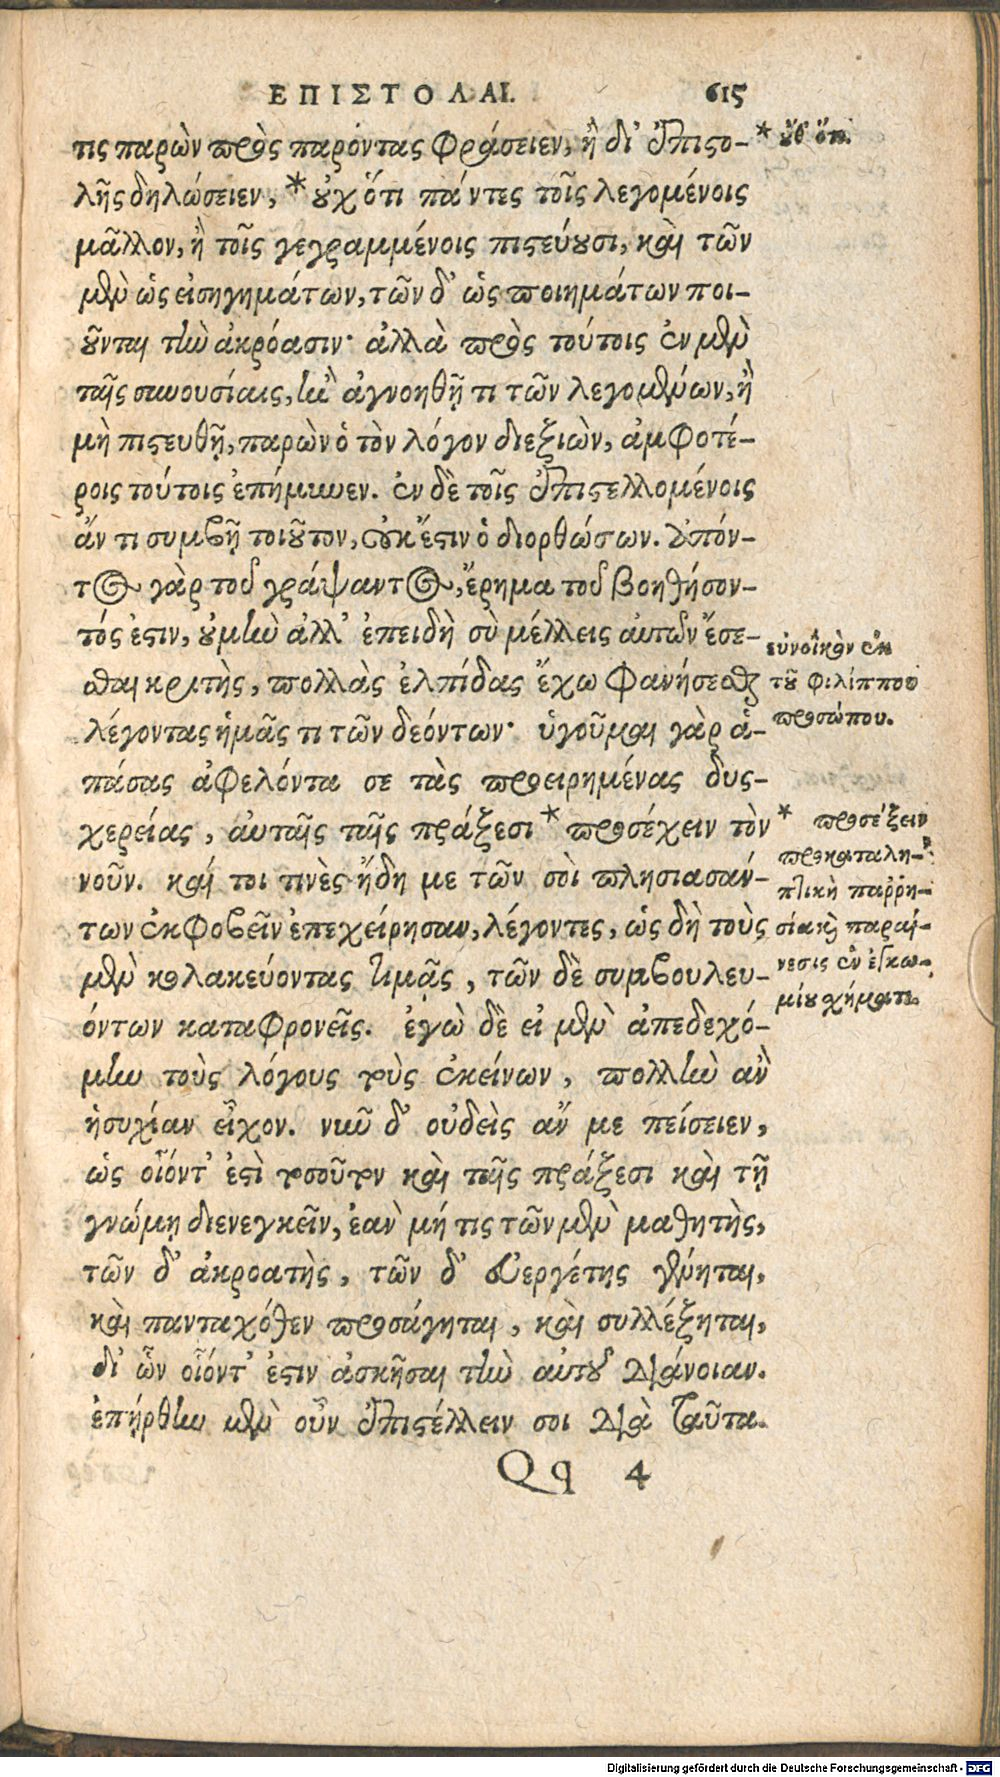 ΕΠΙΣΤΟΛΑΙ. 615
τις παρὼν πρὸς παρόντας φράσειεν, ἢ δι' ἐπιστο-
λῆς δηλώσειεν, * οὐχ ὅτι πάντες τοῖς λεγομένοις
μᾶλλον, ἢ τοῖς γεγραμμένοις πιστεύουσι, καὶ τῶν
μὲν ὡς εἰσηγημάτων, τῶν δ' ὡς ποιημάτων ποι-
οῦνται τὴν ἀκρόασιν· ἀλλὰ πρὸς τούτοις ἐν μὲν
ταῖς συνουσίαις, ἢν ἀγνοηθῇ τι τῶν λεγομένων, ἢ
μὴ πιστευθῇ, παρὼν ὁ τὸν λόγον διεξιὼν, ἀμφοτέ-
ροις τούτοις ἐπήμυνεν. ἐν δὲ τοῖς ἐπιστελλομένοις
ἄν τι συμβῇ τοιοῦτον, οὐκ ἔστιν ὁ διορθώσων. ἀπόν-
τος γὰρ τοῦ γράψαντος, ἔρημα τοῦ βοηθήσον-
τός ἐστιν, οὐ μὴν ἀλλ' ἐπειδὴ σὺ μέλλεις αὐτῶν ἔσε-
σθαι κριτὴς, πολλὰς ἐλπίδας ἔχω φανήσεσθαι
λέγοντας ἡμᾶς τι τῶν δεόντων· ἡγοῦμαι γὰρ ἁ-
πάσας ἀφελόντα σε τὰς προειρημένας δυς-
χερείας, αὐταῖς ταῖς πράξεσι * προσέχειν τὸν
νοῦν. καί τοι τινὲς ἤδη με τῶν σοὶ πλησιασάν-
των ἐκφοβεῖν ἐπεχείρησαν, λέγοντες, ὡς δὴ τοὺς
μὲν κολακεύοντας τιμᾷς, τῶν δὲ συμβουλευ-
όντων καταφρονεῖς. ἐγὼ δὲ εἰ μὲν ἀπεδεχό-
μην τοὺς λόγους τοὺς ἐκείνων, πολλὴν ἂν
ἡσυχίαν εἶχον. νῦν δ' οὐδεὶς ἄν με πείσειεν,
ὡς οἷόντ' ἐστὶ τοσοῦτον καὶ ταῖς πράξεσι καὶ τῇ
γνώμῃ διενεγκεῖν, ἐὰν μή τις τῶν μὲν μαθητὴς,
τῶν δ' ἀκροατὴς, τῶν δ' εὑεργέτης γένηται,
καὶ πανταχόθεν προσάγηται, καὶ συλλέξηται,
δι' ὧν οἷόντ' ἐστιν ἀσκῆσαι τὴν αὑτοῦ διάνοιαν.
ἐπήρθην μὲν οὖν ἐπιστέλλειν σοι διὰ ταῦτα.
Qq 4
* οὐθ' ὅτι.
εὐνοϊκὸν ἐκ
τοῦ φιλίππου
προσώπου.
* προσέξειν
προκαταλη-
πτικὴ παῤῥη-
σία καὶ παραί-
νεσις ἐν ἐγκω-
μίου χήματι.
Digitalisierung gefördert durch die Deutsche Forschungsgemeinschaft - DFG